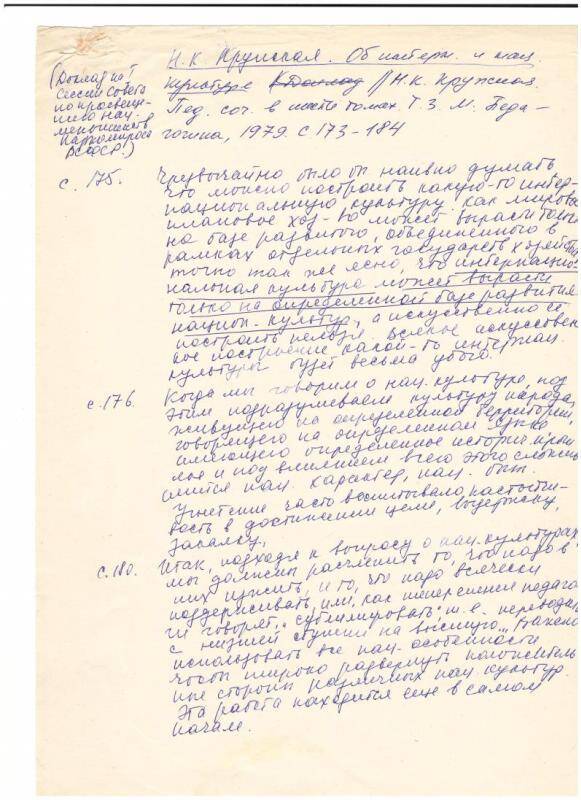 Н.К Крупская. Об интерн. и нац
культуре // Н.К. Крупская.
Пед. соч. в шести томах. Т. 3. М. Педа-
гогика, 1979 с 173-184
(Доклад на I
сессии Совета
по просвеще-
нию нац.
меньшинств
Наркомпроса
РСФСР.)
с. 175. Чрезвычайно было бы наивно думать
что можно построить какую-то интер-
национальную культуру. Как мировое
плановое хоз-во может вырасти только
на базе развитого, объединенного в
рамках отдельных государств хозяйства
точно так же ясно, что интернацио-
нальная культура может вырасти
только на определенной базе развития
национ. культур, а искусственно её
построить нельзя. Всякое искусствен-
ное построение какой-то интернац.
культуры будет весьма убого.
с. 176. Когда мы говорим о нац. культуре, под
этим подразумеваем культуру народа,
живущего на определенной территории,
говорящего на определенном языке
имеющего определенное историч. прош-
лое и под влиянием всего этого сложи-
лись нац. характер, нац. быт.
Угнетение часто воспитывало настойчи-
вость в достижении цели, выдержку,
закалку.
с. 180. Итак, подходя к вопросу о нац. культурах
мы должны расчленить то, что надо в
них изжить, и то, что надо всячески
поддерживать, или, как теперешние педаго-
ги говорят, "сублимировать" т. е. переводить
с низшей ступени на высшую... Важно
использовать все нац. особенности
чтобы широко развернуть положитель
ные стороны различных нац. культур.
Эта работа находится еще в самом
начале.